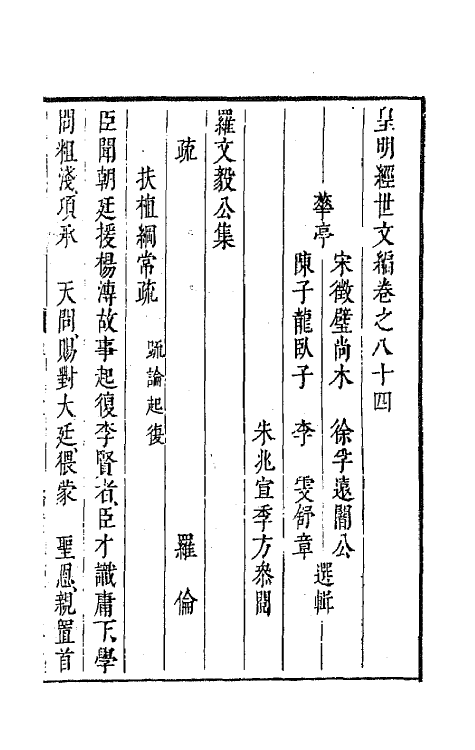 皇明經世文編卷之八十四
華亭
宋徵璧尚木
徐孚遠闇公
陳子龍臥子
李雯舒章
選輯
朱兆宣季方叅閱
羅文毅公集
疏
羅倫
扶植綱常疏
疏論起復
臣聞朝廷援楊溥故事起復李賢者臣才識庸下學
問粗淺項承 天問賜對大廷猥蒙 聖恩親置首